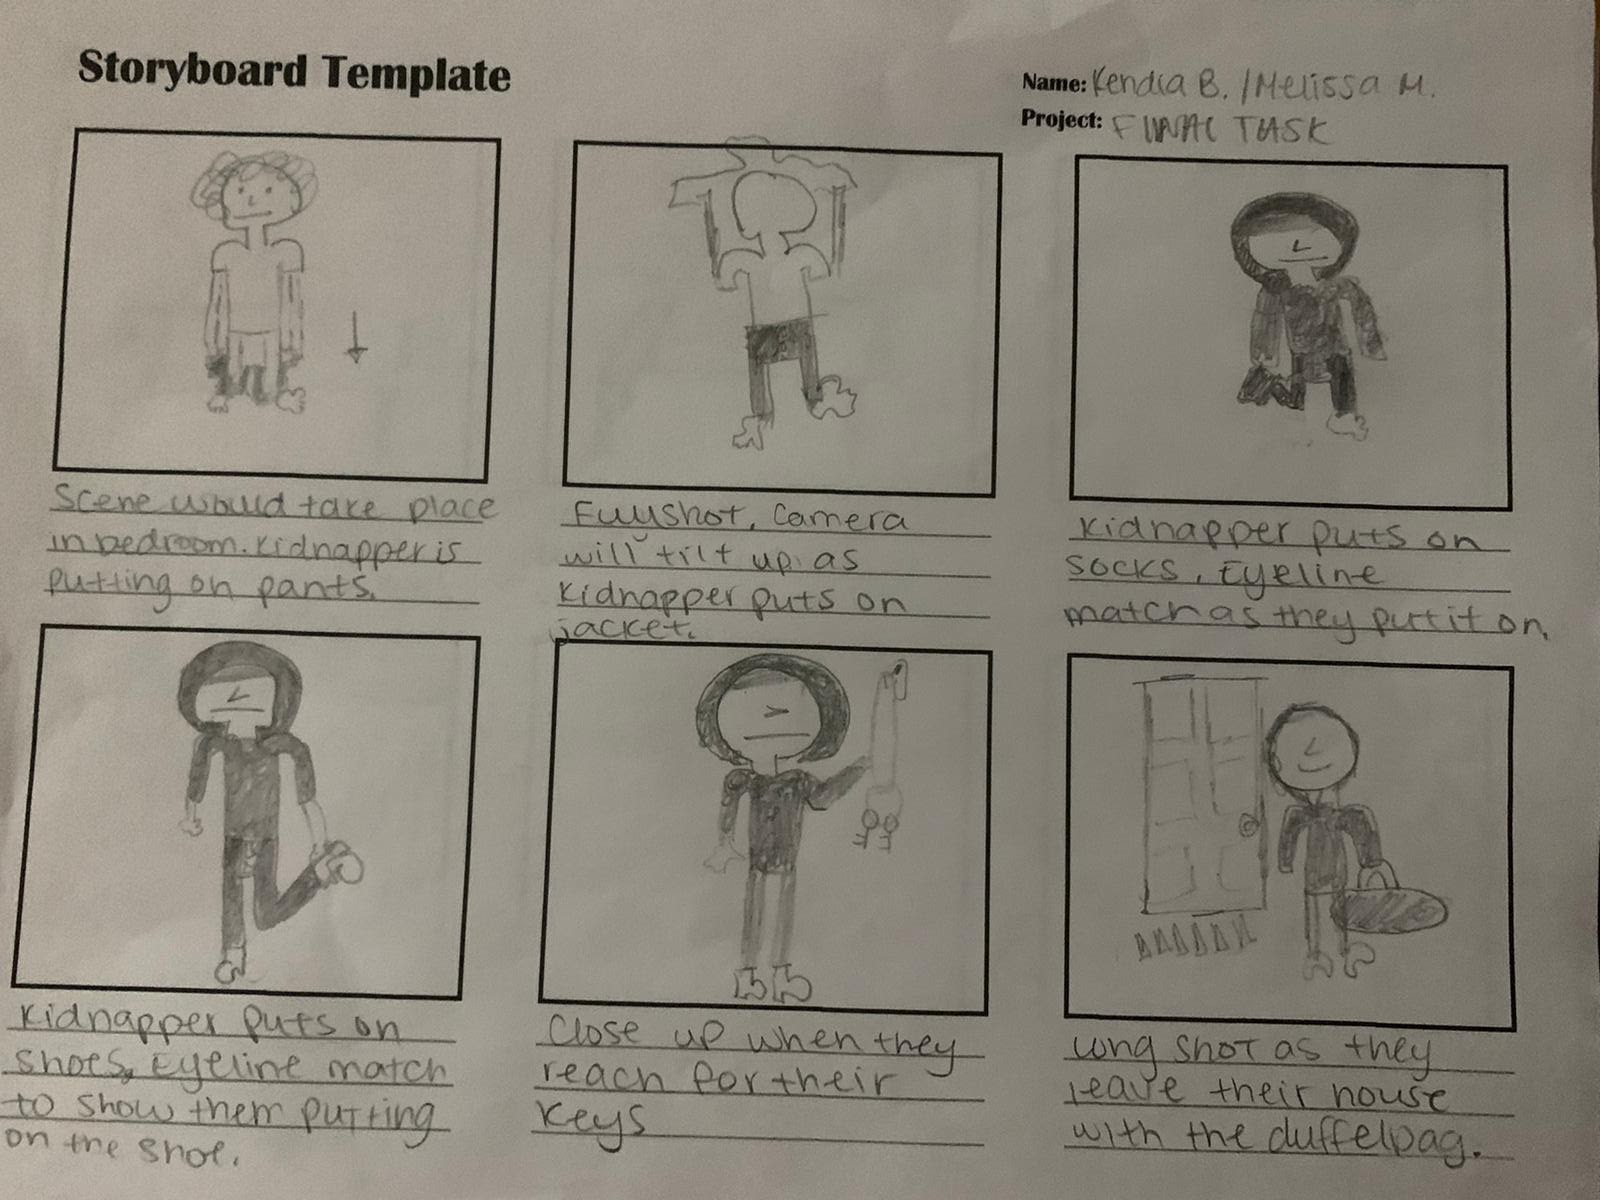 Storyboard Template
Name: Kendia B. / Melissa M.
Project: FINAL TASK
Scene would take place
in bedroom. Kidnapper is
putting on pants.
Full shot. Camera
will tilt up as
kidnapper puts on
jacket.
Kidnapper puts on
socks. Eyeline
match as they put it on.
Kidnapper puts on
shoes, Eyeline match
to show them putting
on the shoe.
Close up when they
reach for their
keys
Long shot as they
leave their house
with the duffelbag.